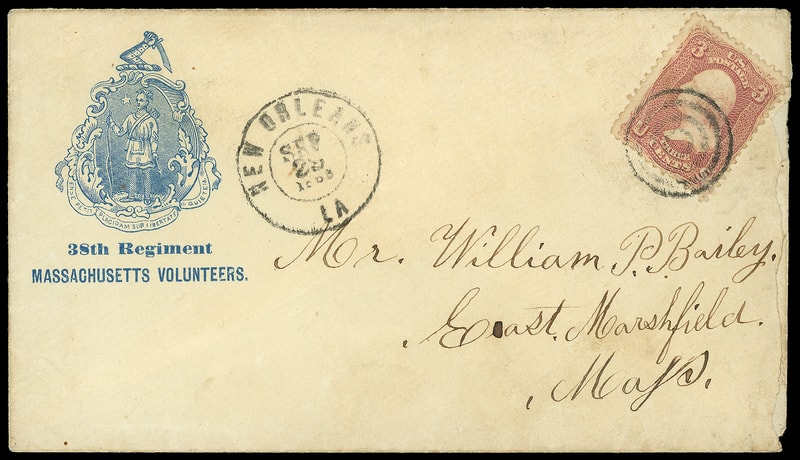 ENSE PETIT PLACIDAM SUB LIBERTATE QUIETEM
38th Regiment
MASSACHUSETTS VOLUNTEERS.
NEW ORLEANS
SEP
LA
3 U.S. POSTAGE 3
Mr. William P. Bailey.
East Marshfield.
Mass.